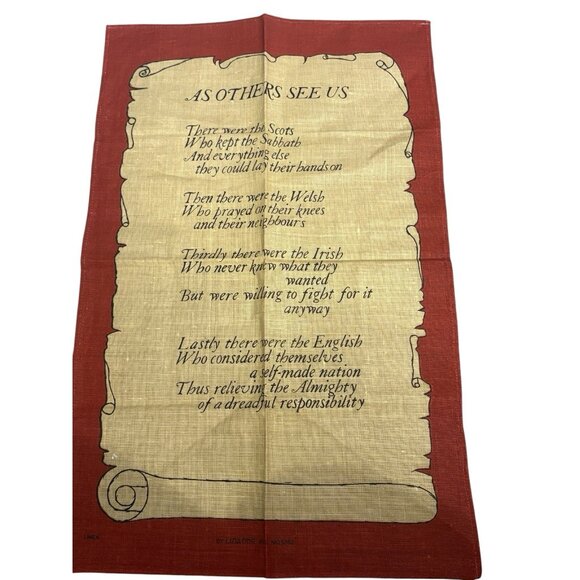 AS OTHERS SEE US
There were the Scots
Who kept the Sabbath
And everything else
they could lay their hands on
Then there were the Welsh
Who prayed on their knees
and their neighbours
Thirdly there were the Irish
Who never knew what they
wanted
But were willing to fight for it
anyway
Lastly there were the English
Who considered themselves
a self-made nation
Thus relieving the Almighty
of a dreadful responsibility